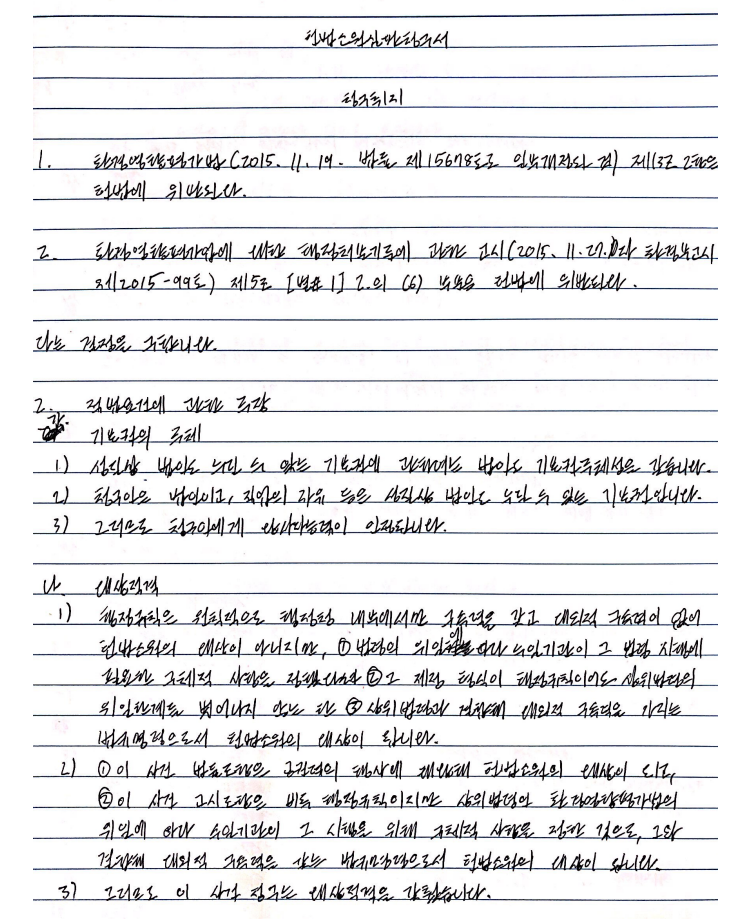 헌법소원심판청구서
청구취지
1. 환경영향평가법(2015. 11. 19. 법률 제15678호로 일부개정된 것) 제13조 2항은
헌법에 위반된다.
2. 환경영향평가법에 대한 행정처분기준에 관한 고시(2015. 11. 27.자 환경부고시
제2015-99호) 제15조 [별표 1] 2.의 (6) 부분은 헌법에 위반된다.
라는 결정을 구합니다.
2. 적법요건에 관한 주장
가. 기본권의 주체
1) 성질상 법인도 누릴 수 있는 기본권에 관하여는 법인도 기본권주체성을 갖습니다.
2) 청구인은 법인이고, 직업의 자유 등은 성질상 법인도 누릴 수 있는 기본권입니다.
3) 그러므로 청구인에게 당사자능력이 인정됩니다.
나. 대상적격
1) 행정규칙은 원칙적으로 행정청 내부에서만 구속력을 갖고 대외적 구속력이 없어
헌법소원의 대상이 아니지만, ① 법령의 위임에 따라 수임기관이 그 법령 시행에
필요한 구체적 사항을 정했다면 ② 그 제정 형식이 행정규칙이어도 상위법령의
위임한계를 벗어나지 않는 한 ③ 상위법령과 결합해 대외적 구속력을 가지는
법규명령으로서 헌법소원의 대상이 됩니다.
2) ① 이 사건 법률조항은 공권력의 행사에 해당해 헌법소원의 대상이 되고,
② 이 사건 고시조항은 비록 행정규칙이지만 상위법령인 환경영향평가법의
위임에 따라 수임기관이 그 시행을 위해 구체적 사항을 정한 것으로, 그와
결합해 대외적 구속력을 갖는 법규명령으로서 헌법소원의 대상이 됩니다.
3) 그러므로 이 사건 청구는 대상적격을 갖췄습니다.